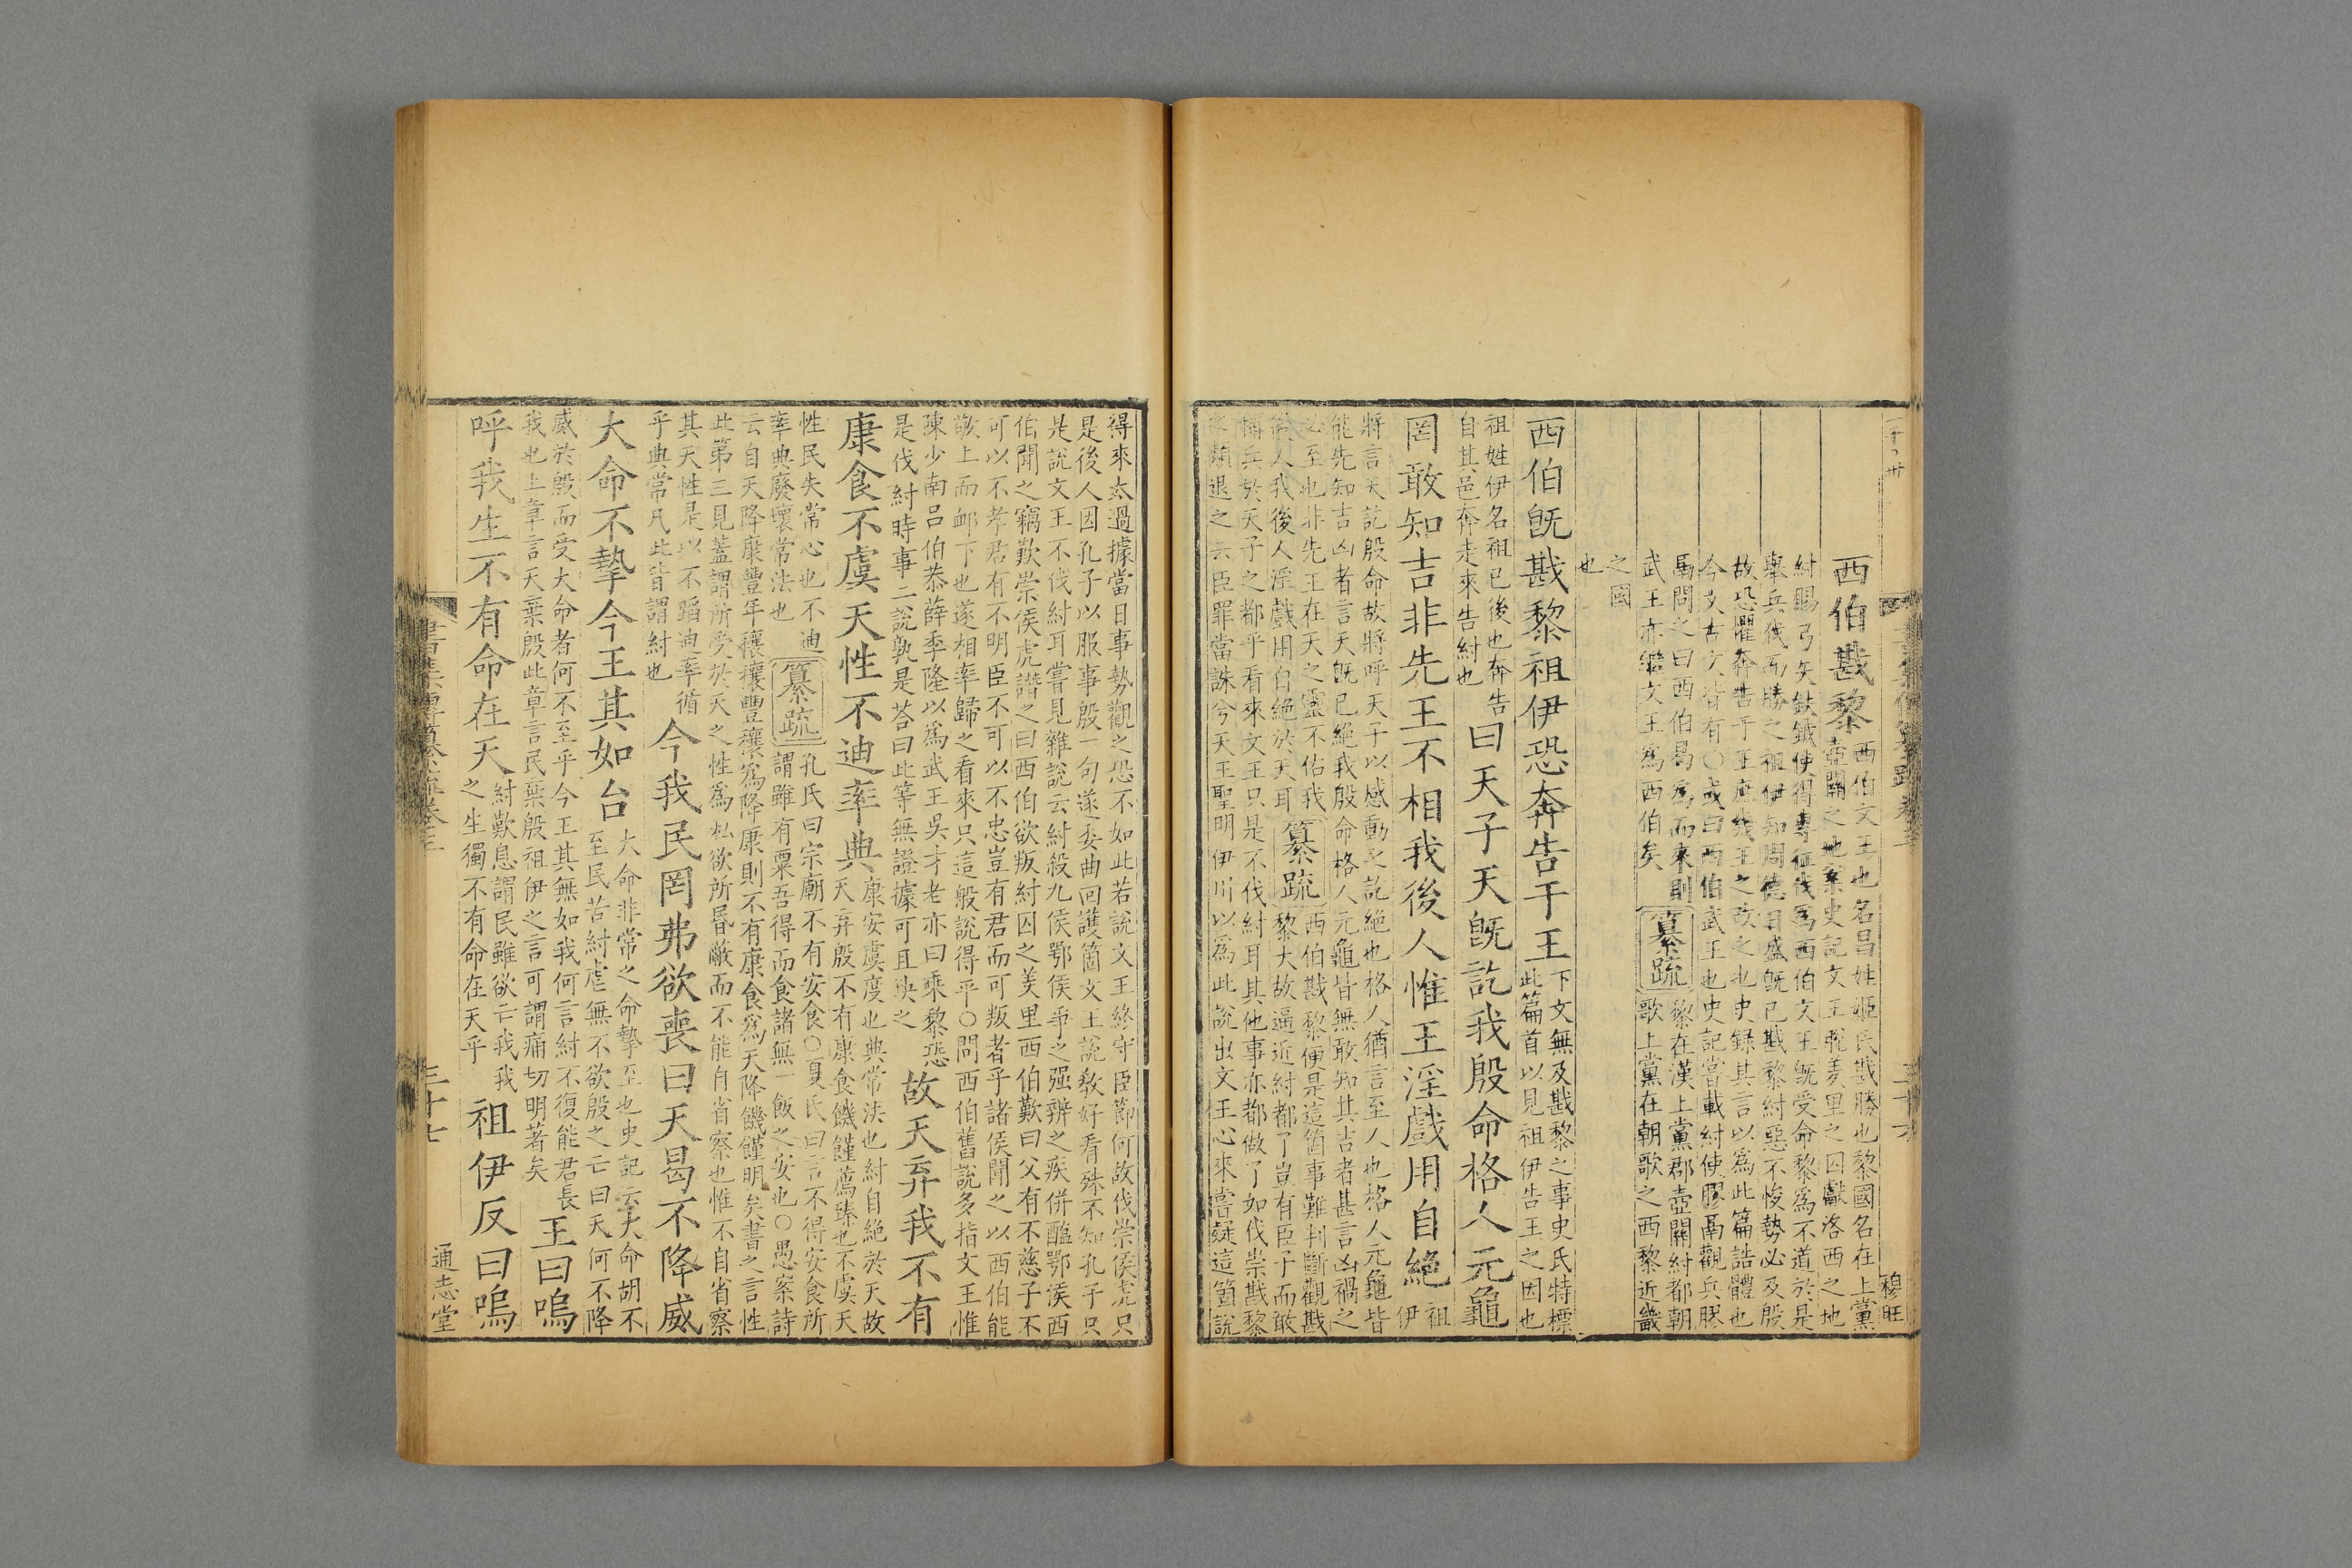 西伯戡黎
西伯文王也名昌姓姬氏戡勝也黎國名在上黨
壺關之地案史記文王脫羑里之囚獻洛西之地
紂賜弓矢鈇鉞使得專征伐爲西伯文王旣受命黎爲不道於是
舉兵伐而勝之祖伊知周德日盛旣已戡黎紂惡不悛勢必及殷
故恐懼奔告于王庶幾王之改之也史録其言以爲此篇誥體也
今文古文皆有○或曰西伯武王也史記嘗載紂使膠鬲觀兵膠
鬲問之曰西伯曷爲而來則
武王亦繼文王爲西伯矣
纂疏
黎在漢上黨郡壺關紂都朝
歌上黨在朝歌之西黎近畿
之國
也
西伯旣戡黎祖伊恐奔告于王
下文無及戡黎之事史氏特標
此篇首以見祖伊告王之因也
祖姓伊名祖已後也奔告
自其邑奔走來告紂也
曰天子天旣訖我殷命格人元龜
罔敢知吉非先王不相我後人惟王淫戲用自絕
祖
伊
將言天訖殷命故將呼天子以感動之訖絶也格人猶言至人也格人元龜皆
能先知吉凶者言天旣已絶我殷命格人元龜皆無敢知其吉者甚言凶禍之
必至也非先王在天之靈不佑我
後人我後人淫戲用自絶於天耳
纂疏
西伯戡黎便是這箇事難判斷觀戡
黎大故逼近紂都了豈有臣子而敢
稱兵於天子之都乎看來文王只是不伐紂耳其他事亦都做了如伐崇戡黎
之類退之云臣罪當誅兮天王聖明伊川以爲此說出文王心來嘗疑這箇說
穆旺
得來太過據當日事勢觀之恐不如此若說文王終守臣節何故伐崇侯虎只
是後人因孔子以服事殷一句遂委曲回護箇文王說敎好看殊不知孔子只
是說文王不伐紂耳嘗見雜說云紂殺九侯鄂侯爭之强辨之疾併醢鄂侯西
伯聞之竊歎崇侯虎譖之曰西伯欲叛紂囚之羑里西伯歎曰父有不慈子不
可以不孝君有不明臣不可以不忠豈有君而可叛者乎諸侯聞之以西伯能
敬上而卹下也遂相率歸之看來只這般說得平○問西伯舊說多指文王惟
陳少南呂伯恭薛季隆以爲武王吳才老亦曰乘黎恐
是伐紂時事二說孰是荅曰此等無證據可且闕之
故天弃我不有
康食不虞天性不迪率典
康安虞度也典常法也紂自絶於天故
天弃殷不有康食饑饉荐臻也不虞天
性民失常心也不迪
率典廢壞常法也
纂疏
孔氏曰宗廟不有安食○夏氏曰言不得安食所
謂雖有粟吾得而食諸無一飯之安也○愚案詩
云自天降康豐年穰穰豐穰爲降康則不有康食爲天降饑饉明矣書之言性
此第三見蓋謂所受於天之性爲私欲所昏蔽而不能自省察也惟不自省察
其天性是以不蹈迪率循
乎典常凡此皆謂紂也
今我民罔弗欲喪曰天曷不降威
大命不摯今王其如台
大命非常之命摯至也史記云大命胡不
至民苦紂虐無不欲殷之亡曰天何不降
威於殷而受大命者何不至乎今王其無如我何言紂不復能君長
我也上章言天棄殷此章言民棄殷祖伊之言可謂痛切明著矣
王曰嗚
呼我生不有命在天
紂歎息謂民雖欲亡我我
之生獨不有命在天乎
祖伊反曰嗚
三十七
通志堂